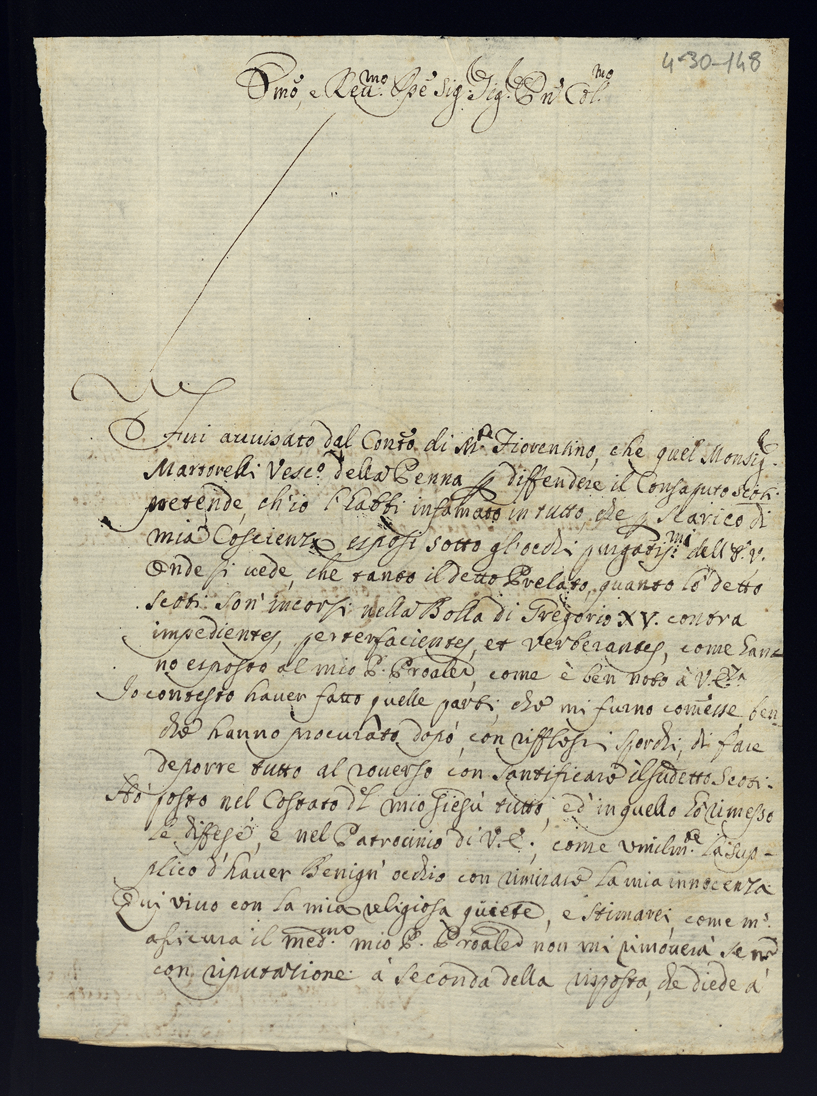 4-30-148
Emo, e Reu.mo Pñe Sig.r Sig.r Pñ Col.mo
Fui auuisato dal Conto di M.a Fiorentino, che quel Monsig.r
Martorelli Vesc.o della Penna p diffendere il Consaputo Scoti
pretende, ch'io l'habbi infamato in tutto, che p sgravico di
mia Coscienza esposi sotto gli occhi purgatiss.mi dell'E. V.
Onde si uede, che tanto il detto Prelato, quanto lo detto
Scoti son' incorsi nella Bolla di Gregorio XV. contra
impedientes, perterfacientes, et verberantes, come han-
no esposto al mio P. Proale, come è ben noto à V. E.za
Io contesto hauer fatto quelle parti, che mi furno comesse, ben
che hanno procurato dopò, con rifflessi sporchi, di fare
deporre tutto al rouerso con santificare il sudetto Scoti.
Hò posto nel Costato del mio Giesù tutto, ed in quello hò rimesso
le diffese, e nel Patrocinio di V. E., come umilm.te la sup-
plico d'hauer Benign' occhio con rimirare la mia innocenza
Qui viuo con la mia religiosa quiete, e stimarei, come m'
assicura il med.mo mio P. Proale non mi rimouerà se non
con riputazione à seconda della risposta, che diede à